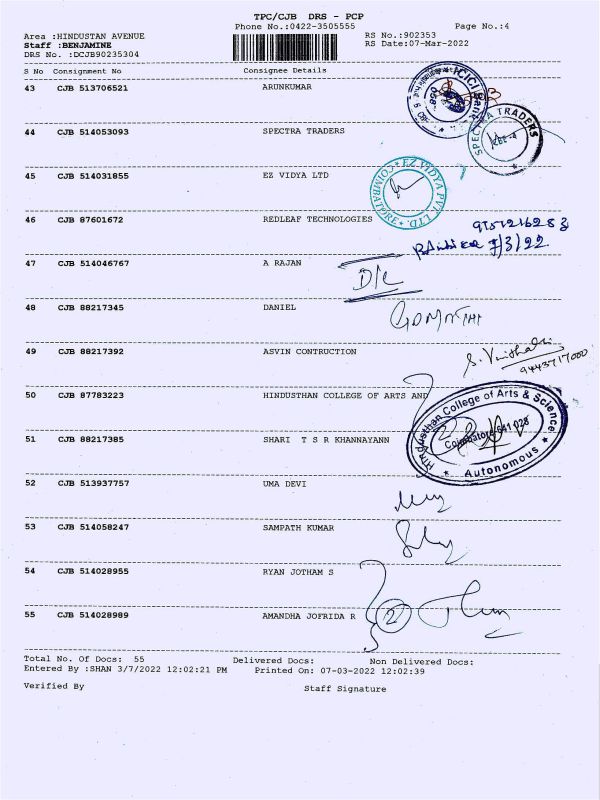 TPC/CJB DRS - PCP
Phone No.:0422-3505555
Page No.:4
Area :HINDUSTAN AVENUE
RS No.:902353
Staff :BENJAMINE
RS Date:07-Mar-2022
DRS No. :DCJB90235304
S No Consignment No Consignee Details
43 CJB 513706521 ARUNKUMAR
44 CJB 514053093 SPECTRA TRADERS
SPECTRA TRADERS
45 CJB 514031855 EZ VIDYA LTD
EZ VIDYA PVT. LTD.
COIMBATORE
46 CJB 87601672 REDLEAF TECHNOLOGIES
7/3/22
47 CJB 514046767 A RAJAN
D/L
48 CJB 88217345 DANIEL
GOMATHI
49 CJB 88217392 ASVIN CONTRUCTION
9443717000
50 CJB 87783223 HINDUSTHAN COLLEGE OF ARTS AND
Hindusthan College of Arts & Science
Coimbatore-641 028
Autonomous
51 CJB 88217385 SHARI T S R KHANNAYANN
52 CJB 513937757 UMA DEVI
53 CJB 514058247 SAMPATH KUMAR
54 CJB 514028955 RYAN JOTHAM S
55 CJB 514028989 AMANDHA JOFRIDA R
2
Total No. Of Docs: 55 Delivered Docs: Non Delivered Docs:
Entered By :SHAN 3/7/2022 12:02:21 PM Printed On: 07-03-2022 12:02:39
Verified By Staff Signature